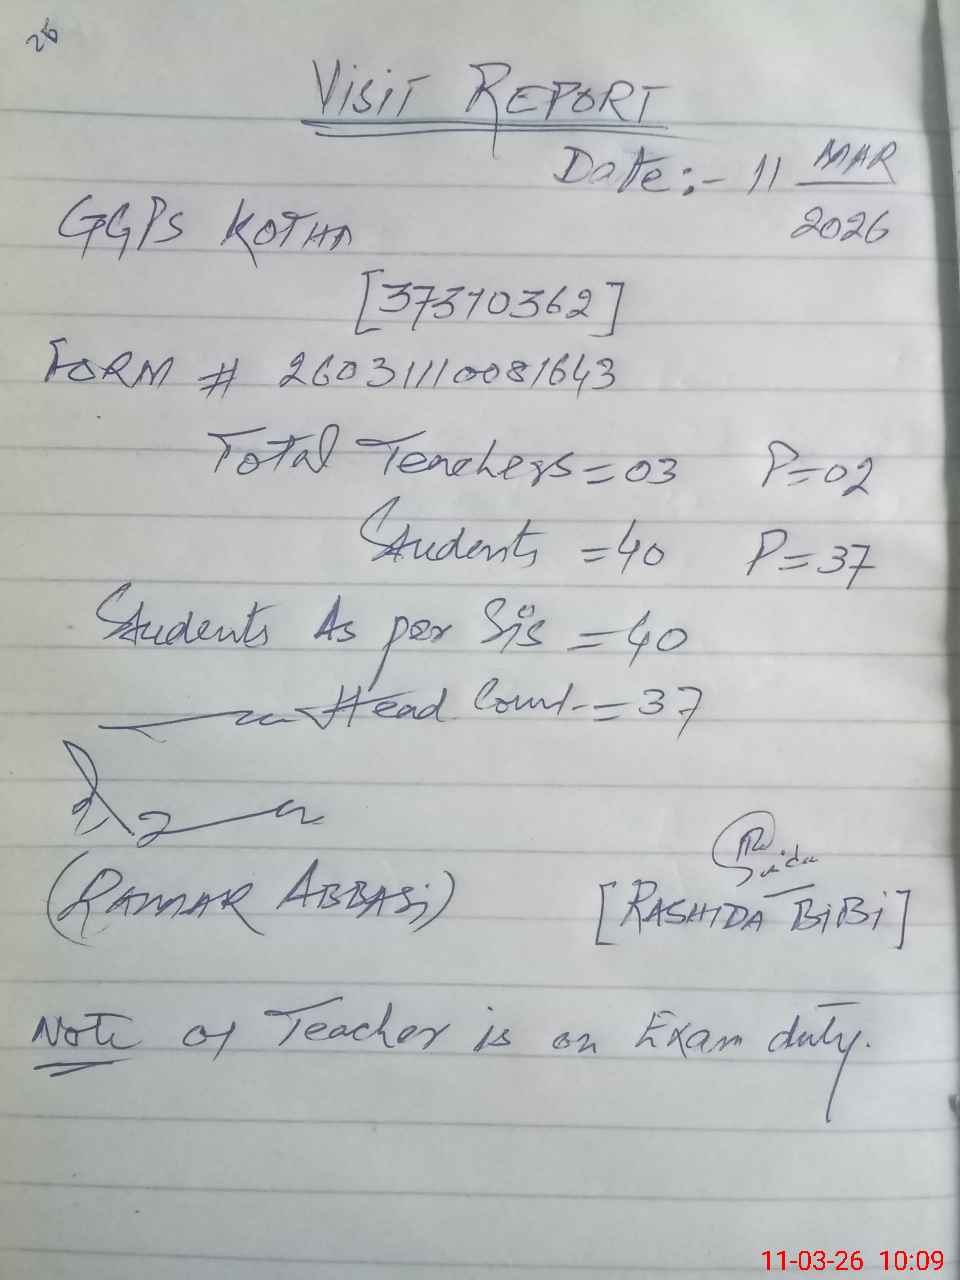 26
VISIT REPORT
Date:- 11 MAR
2026
GGPS KOTHA
[37310362]
FORM # 26031110081643
Total Teachers = 03 P=02
Students = 40 P=37
Students As per SiS = 40
Head Count = 37
(QAMAR ABBASi)
[RASHIDA BiBi]
Note 01 Teacher is on Exam duty.
11-03-26 10:09